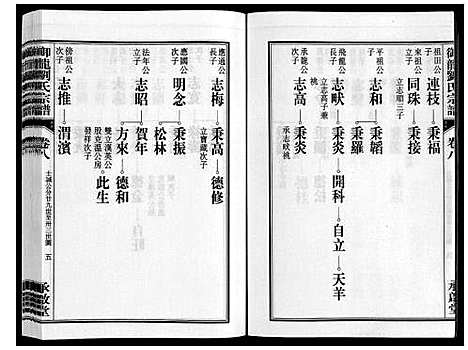 御龍劉氏宗譜
卷八
承啟堂
祖田公
子
連枝
秉福
東祖公
次子
同珠
秉接
立志順三子
平祖公
立子
志和
秉韜
秉羅
飛龍公
長子
志畎
秉炎
開科
自立
天羊
立志高子秉
桃
承龍公
次子
志高
秉炎
承志畎桃
應通公
長子
志梅
秉高
德修
立寶藏次子
應國公
次子
明念
秉振
松林
法年公
立子
志昭
賀年
方來
德和
雙立漢英公
股克滙公房
發祥次子
此生
傍祖公
次子
志推
渭濱
御龍劉氏宗譜
卷八
士誠公分廿九世至卅三世圖
五
承啟堂